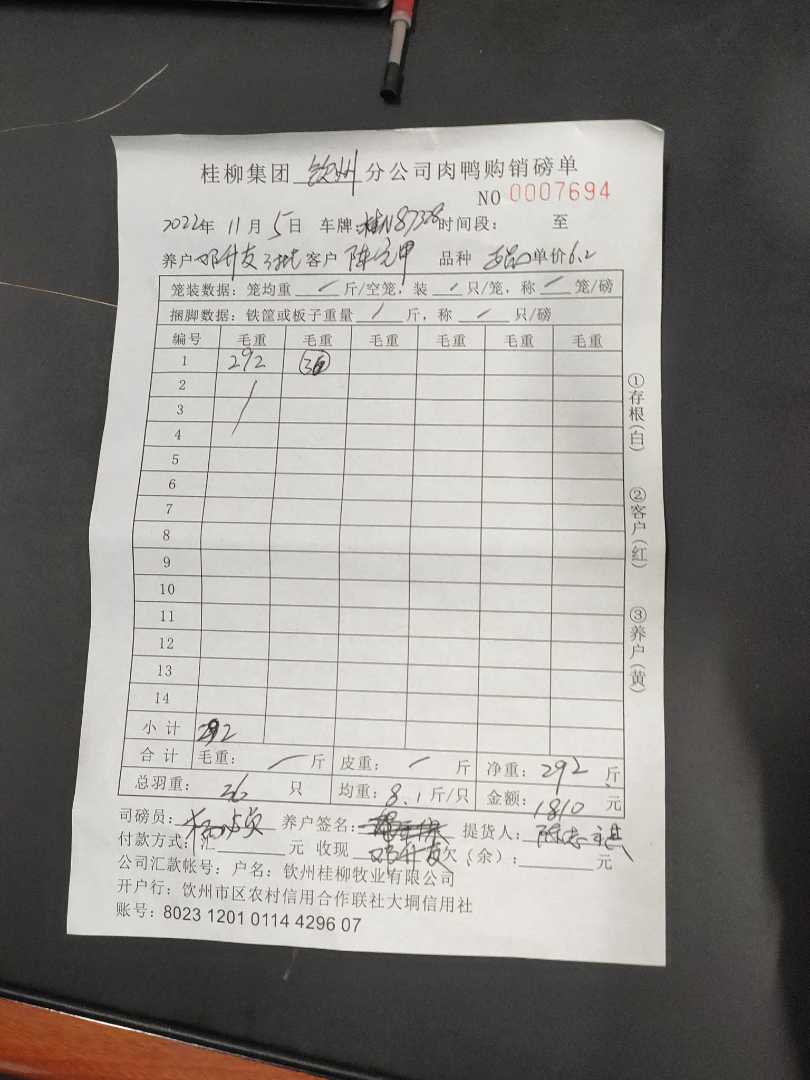 桂柳集团 钦州 分公司肉鸭购销磅单
NO 0007694
2022年 11月 5日 车牌:桂N87328 时间段: 至
养户 邓升友 客户 陈元甲 品种 单价6.2
笼装数据:笼均重 / 斤/空笼,装 / 只/笼,称 / 笼/磅
捆脚数据:铁筐或板子重量 / 斤,称 / 只/磅
编号 毛重 毛重 毛重 毛重 毛重 毛重
1 292 36
2
3
4
5
6
7
8
9
10
11
12
13
14
小计 292
合计 毛重: / 斤 皮重: / 斤 净重: 292 斤
总羽重: 36 只 均重: 8.1 斤/只 金额: 1810 元
司磅员: 养户签名: 提货人:
付款方式:汇 元 收现 邓升友 欠(余): 元
公司汇款帐号:户名:钦州桂柳牧业有限公司
开户行:钦州市区农村信用合作联社大垌信用社
账号:8023 1201 0114 4296 07
①存根(白)
②客户(红)
③养户(黄)